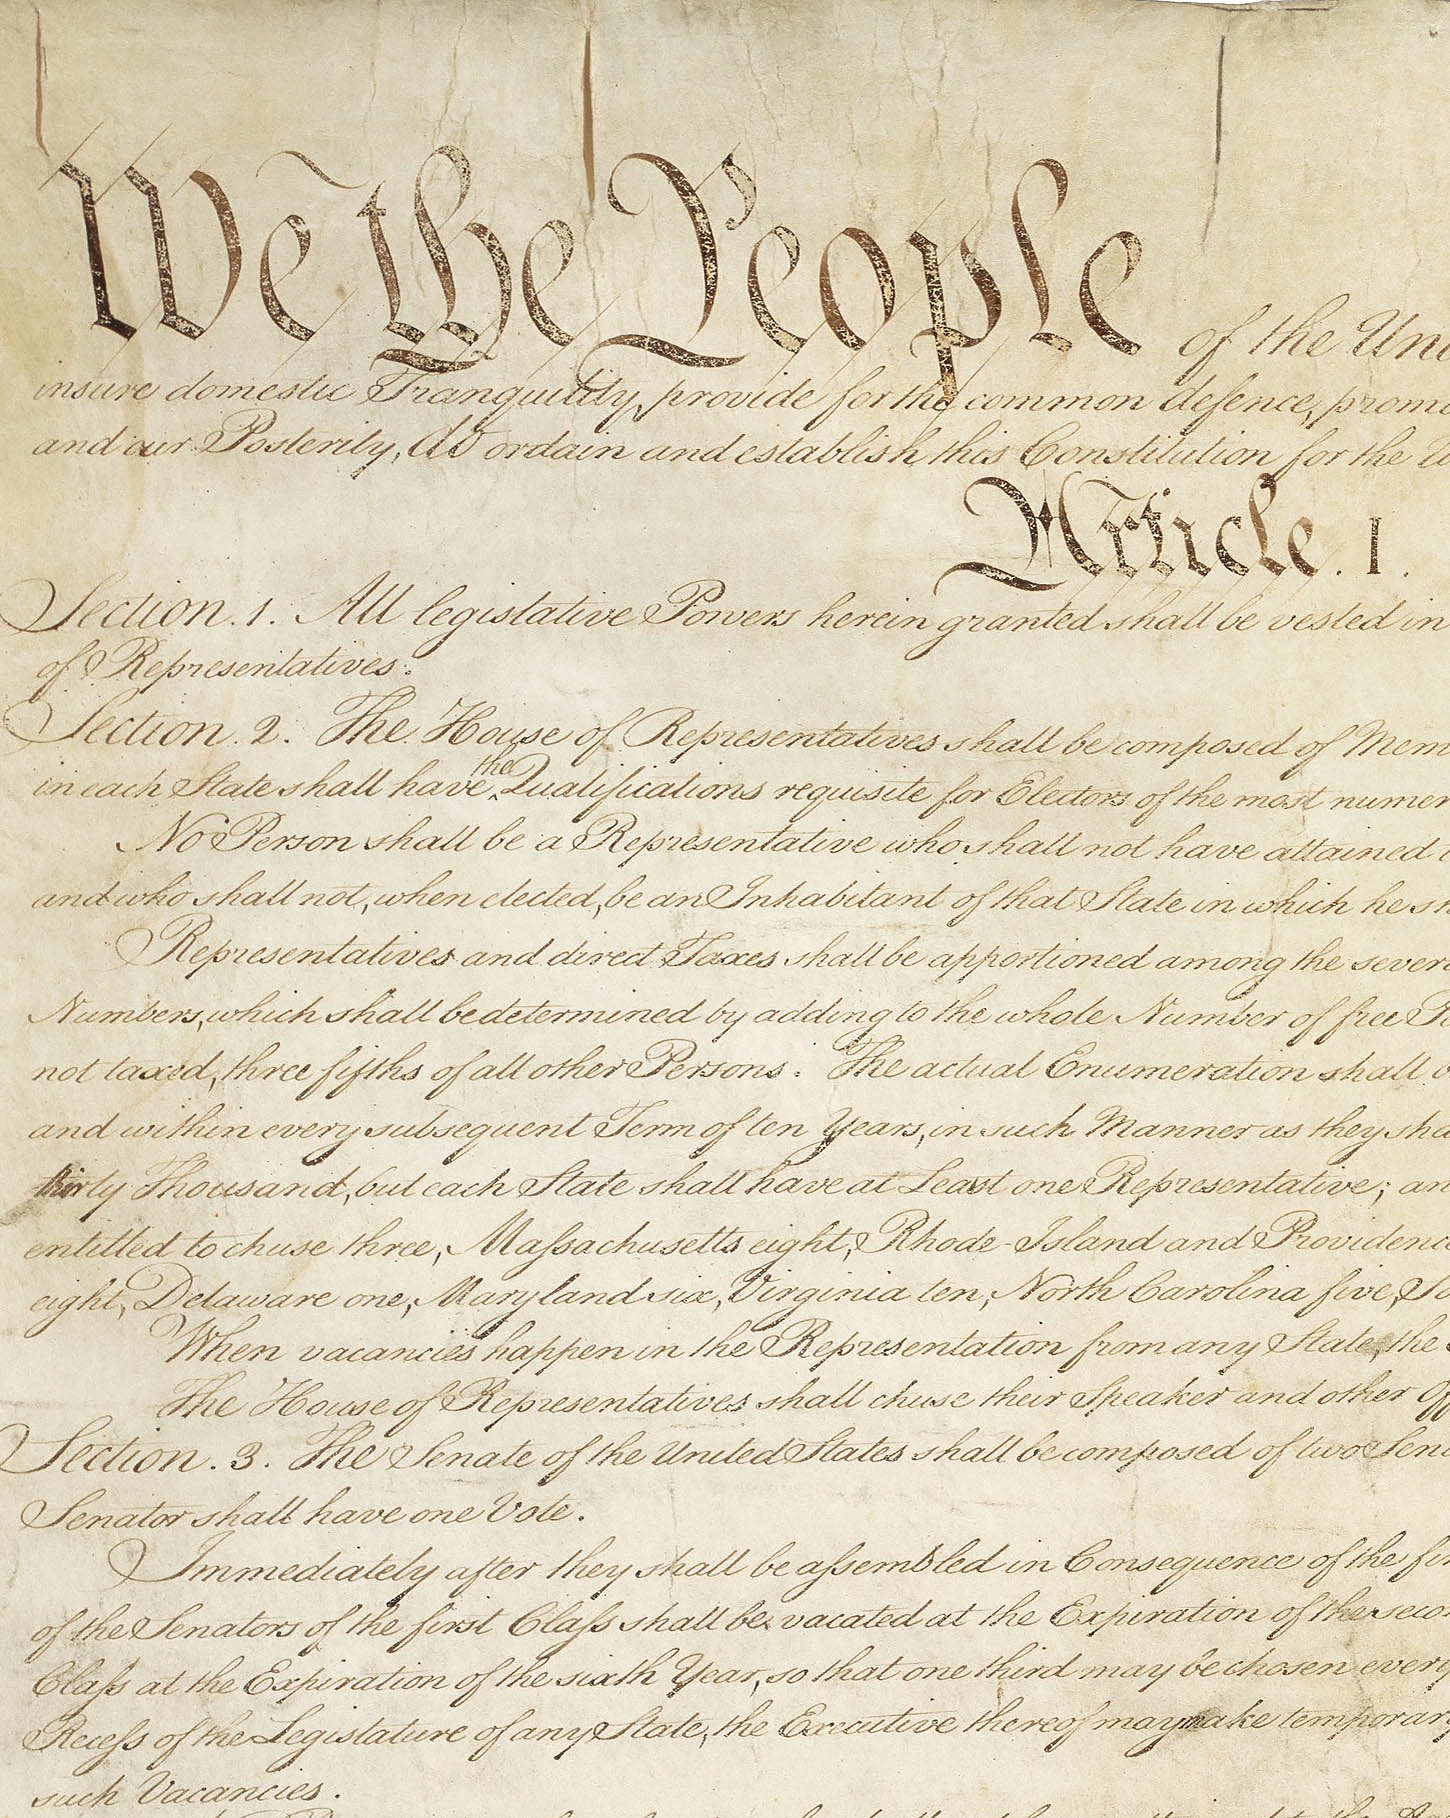 We the People of the Uni
insure domestic Tranquility, provide for the common defence, promo
and our Posterity, do ordain and establish this Constitution for the U
Article. I.
Section. 1. All legislative Powers herein granted shall be vested in
of Representatives.
Section. 2. The House of Representatives shall be composed of Mem
the
in each State shall have Qualifications requisite for Electors of the most numer
No Person shall be a Representative who shall not have attained
and who shall not, when elected, be an Inhabitant of that State in which he sh
Representatives and direct Taxes shall be apportioned among the sever
Numbers, which shall be determined by adding to the whole Number of free
not taxed, three fifths of all other Persons. The actual Enumeration shall
and within every subsequent Term of ten Years, in such Manner as they sha
thirty Thousand, but each State shall have at Least one Representative; an
entitled to chuse three, Massachusetts eight, Rhode-Island and Providence
eight, Delaware one, Maryland six, Virginia ten, North Carolina five,
When vacancies happen in the Representation from any State, the
The House of Representatives shall chuse their Speaker and other Off
Section. 3. The Senate of the United States shall be composed of two Sen
Senator shall have one Vote.
Immediately after they shall be assembled in Consequence of the fir
of the Senators of the first Class shall be vacated at the Expiration of the seco
Class at the Expiration of the sixth Year, so that one third may be chosen every
Recess of the Legislature of any State, the Executive thereof may make temporary
such Vacancies.